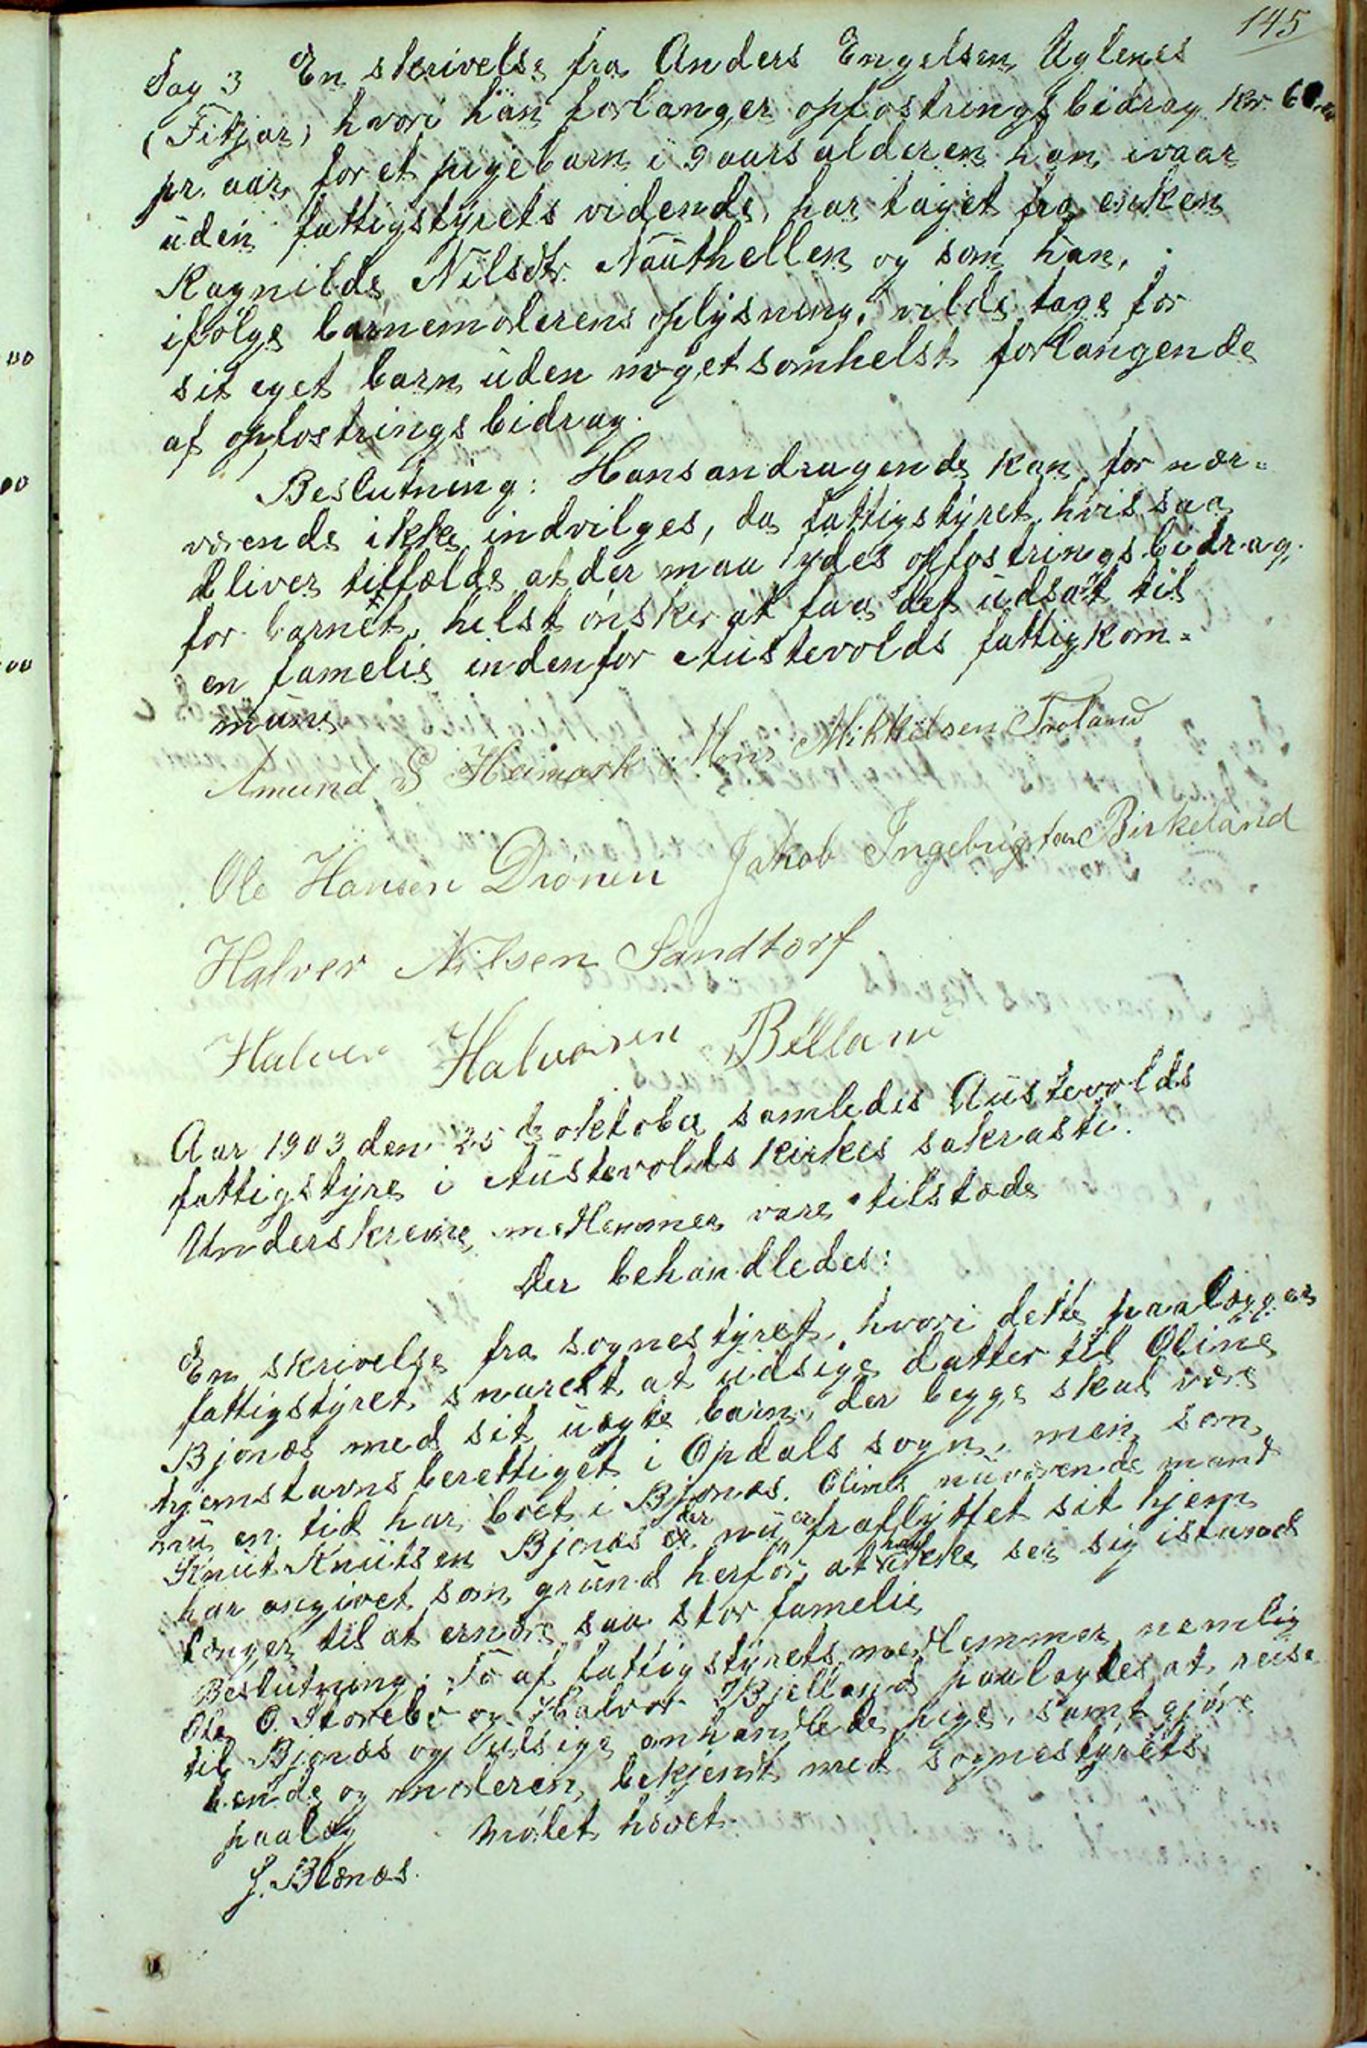 145
Sag 3 En skrivelse fra Anders Engelsen Uglenes
(Fitjar) hvori han forlanger opfostringsbidrag kr. 60.00
pr. aar, for et pigebarn i 9 aarsalderen han ivaar
uden fattigstyrets vidende, har taget fra enken
Ragnilde Nilsdtr. Nauthellen og som han,
ifølge barnemoderens oplysning, vilde tage for
sit eget barn uden nogetsomhelst forlangende
af opfostringsbidrag.
Beslutning: Hans andragende kan for nær-
værende ikke indvilges, da fattigstyret hvis saa
bliver tilfælde at der maa ydes opfostringsbidrag
for barnet, helst ønsker at faa det udsat til
en famelie indenfor Austevolds fattigkom-
mune
Amund S Heimark Hans Mikkelsen Troland
Ole Hansen Drönen Jakob Ingebrigtsen Birkeland
Halver Nilsen Sandtorf
Halver Halvorsen Bellann
Aar 1903 den 25 de oktober samledes Austevolds
fattigstyre i Austevolds kirkes sakrasti.
Underskrevne medlemmer vare tilstæde
Der behandledes:
En skrivelse fra sognestyret, hvori dette paalægger
fattigstyret snarest at udsige datter til Oline
Bjonæs med sit uægte barn, der begge skal være
hjemstavnsberettiget i Opdals sogn, men som
nu en tid har boet i Bjonæs. Olines nuværende mand
Knut Knutsen Bjonæs der nu er fraflyttet sit hjem
har angivet som grund herfor, at han ikke ser sig istand
længer til at ernære saa stor famelie
Beslutning: To af fattigstyrets medlemmer nemlig
Ole O. Storebø og Halvor Bjelland paalagdes at reise
til Bjonæs og udsige omhandlede pige, samt gjøre
hende og moderen bekjendt med sognestyrets
paalæg Mødet hævet.
J. Blænæs.